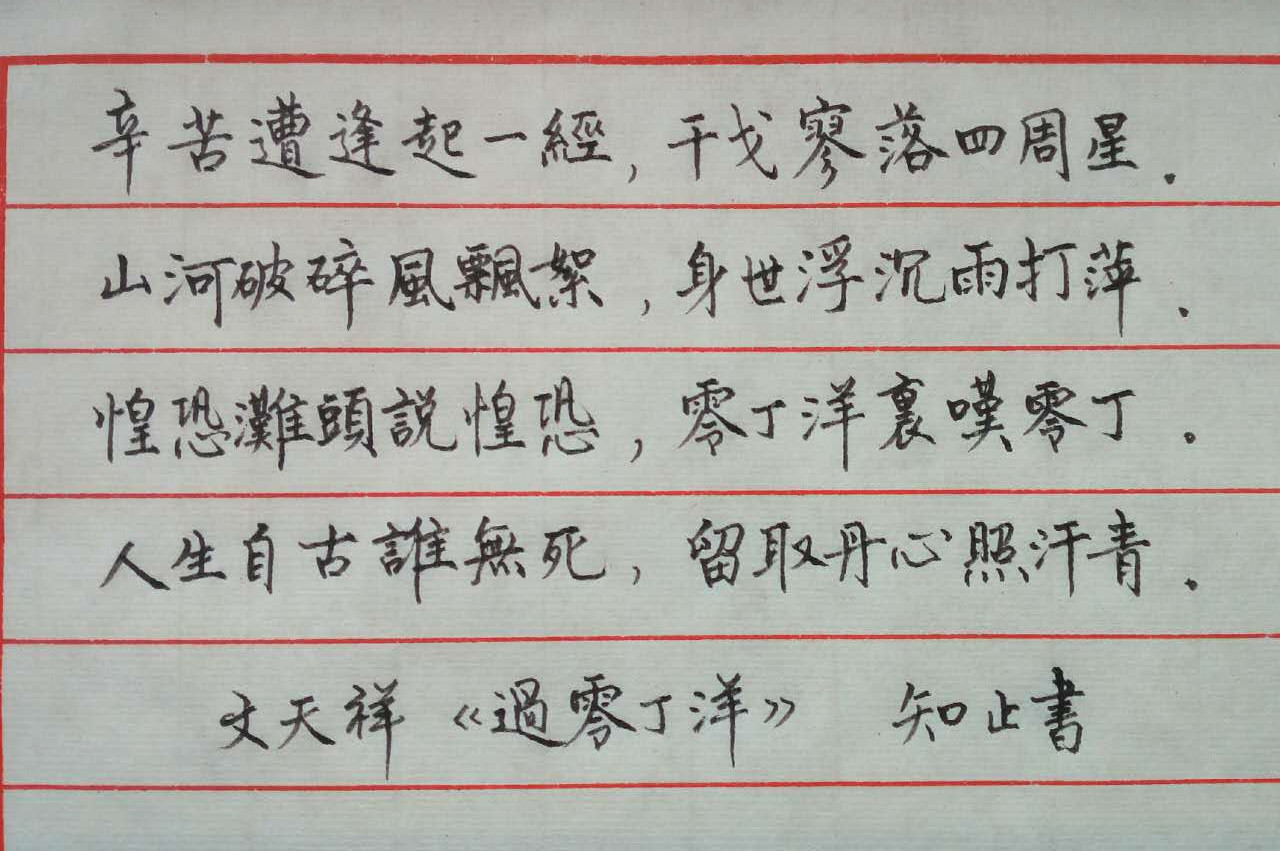 辛苦遭逢起一經,干戈寥落四周星.
山河破碎風飄絮,身世浮沉雨打萍.
惶恐灘頭説惶恐,零丁洋裏嘆零丁.
人生自古誰無死,留取丹心照汗青.
文天祥《過零丁洋》 知止書